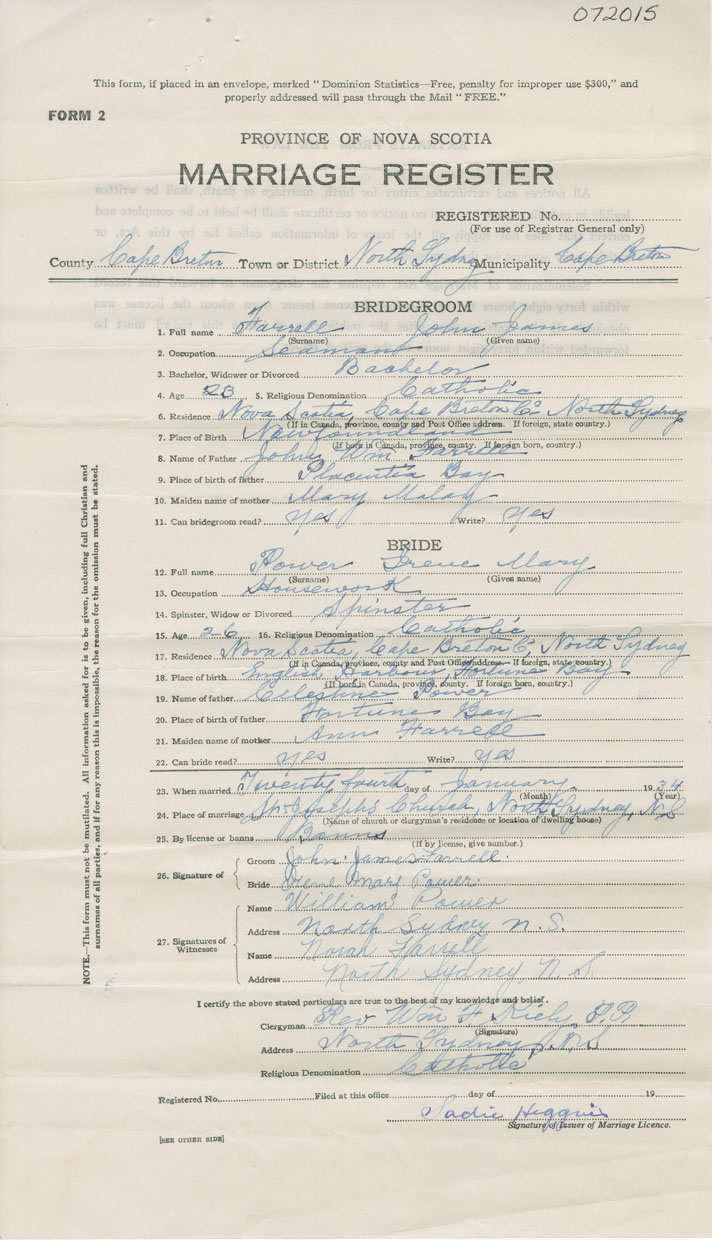 072015
This form, if placed in an envelope, marked "Dominion Statistics—Free, penalty for improper use $300," and
properly addressed will pass through the Mail "FREE."
FORM 2
PROVINCE OF NOVA SCOTIA
MARRIAGE REGISTER
REGISTERED No.
(For use of Registrar General only)
County Cape Breton Town or District North Sydney Municipality Cape Breton
BRIDEGROOM
1. Full name Farrell John James
(Surname) (Given name)
2. Occupation Seaman
3. Bachelor, Widower or Divorced Bachelor
4. Age 23 5. Religious Denomination Catholic
6. Residence Nova Scotia, Cape Breton Co North Sydney
(If in Canada, province, county and Post Office address. If foreign, state country.)
7. Place of Birth Newfoundland
(If born in Canada, province, county. If foreign born, country.)
8. Name of Father John Wm Farrell
9. Place of birth of father Placentia Bay
10. Maiden name of mother Mary Malay
11. Can bridegroom read? Yes Write? Yes
BRIDE
12. Full name Power Irene Mary
(Surname) (Given name)
13. Occupation Housework
14. Spinster, Widow or Divorced Spinster
15. Age 26 16. Religious Denomination Catholic
17. Residence Nova Scotia, Cape Breton Co, North Sydney
(If in Canada, province, county and Post Office address. If foreign, state country.)
18. Place of birth English Harbour, Fortune Bay
(If born in Canada, province, county. If foreign born, country.)
19. Name of father Celestine Power
20. Place of birth of father Fortune Bay
21. Maiden name of mother Ann Farrell
22. Can bride read? yes Write? yes
23. When married Twenty fourth day of January 1934
(Month) (Year)
24. Place of marriage St. Joseph's Church, North Sydney, N.S
(Name of church or clergyman's residence or location of dwelling house)
25. By license or banns Banns
(If by license, give number.)
26. Signature of
Groom John James Farrell.
Bride Irene Mary Power.
27. Signatures of Witnesses
Name William Power
Address North Sydney N.S.
Name Norah Farrell
Address North Sydney N.S.
I certify the above stated particulars are true to the best of my knowledge and belief.
Clergyman Rev Wm F Kiely P.P.
(Signature)
Address North Sydney, N.S
Religious Denomination Catholic
Registered No. Filed at this office day of 19
Sadie Higgins
Signature of Issuer of Marriage Licence.
[SEE OTHER SIDE]
NOTE.—This form must not be mutilated. All information asked for is to be given, including full Christian and
surnames of all parties, and if for any reason this is impossible, the reason for the omission must be stated.